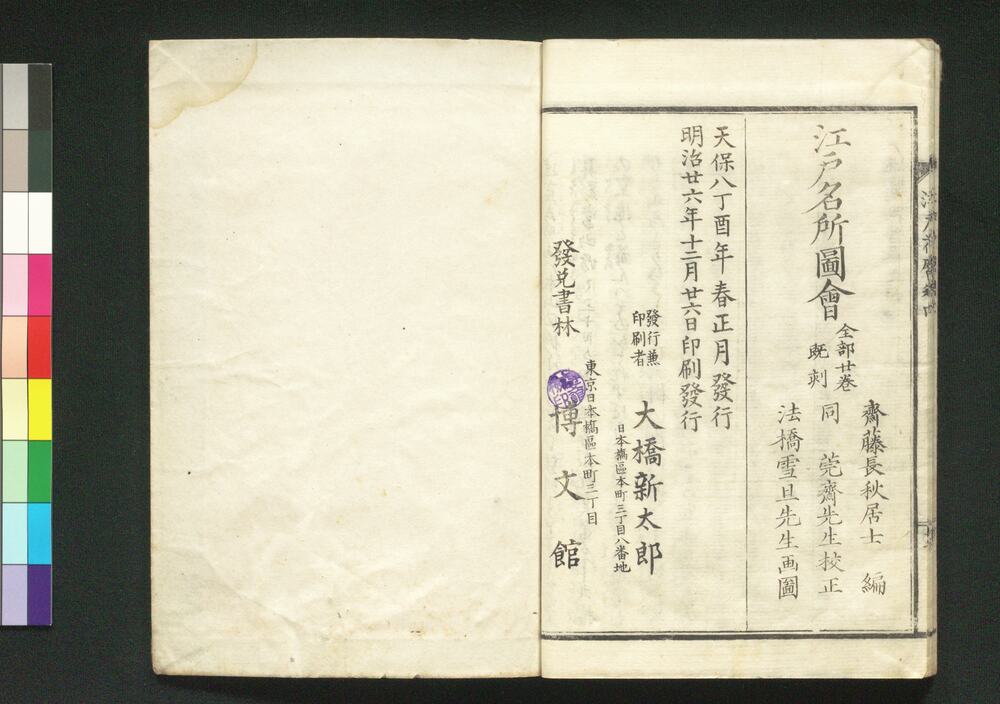 江戸名所圖會
全部廿巻
既刻
齋藤長秋居士　編
同　莞齋先生挍正
法橋雪旦先生画圖
天保八丁酉年春正月發行
明治廿六年十二月廿六日印刷發行
發行兼
印刷者
大橋新太郎
日本橋區本町三丁目八番地
東京日本橋區本町三丁目
發兌書林
博文館